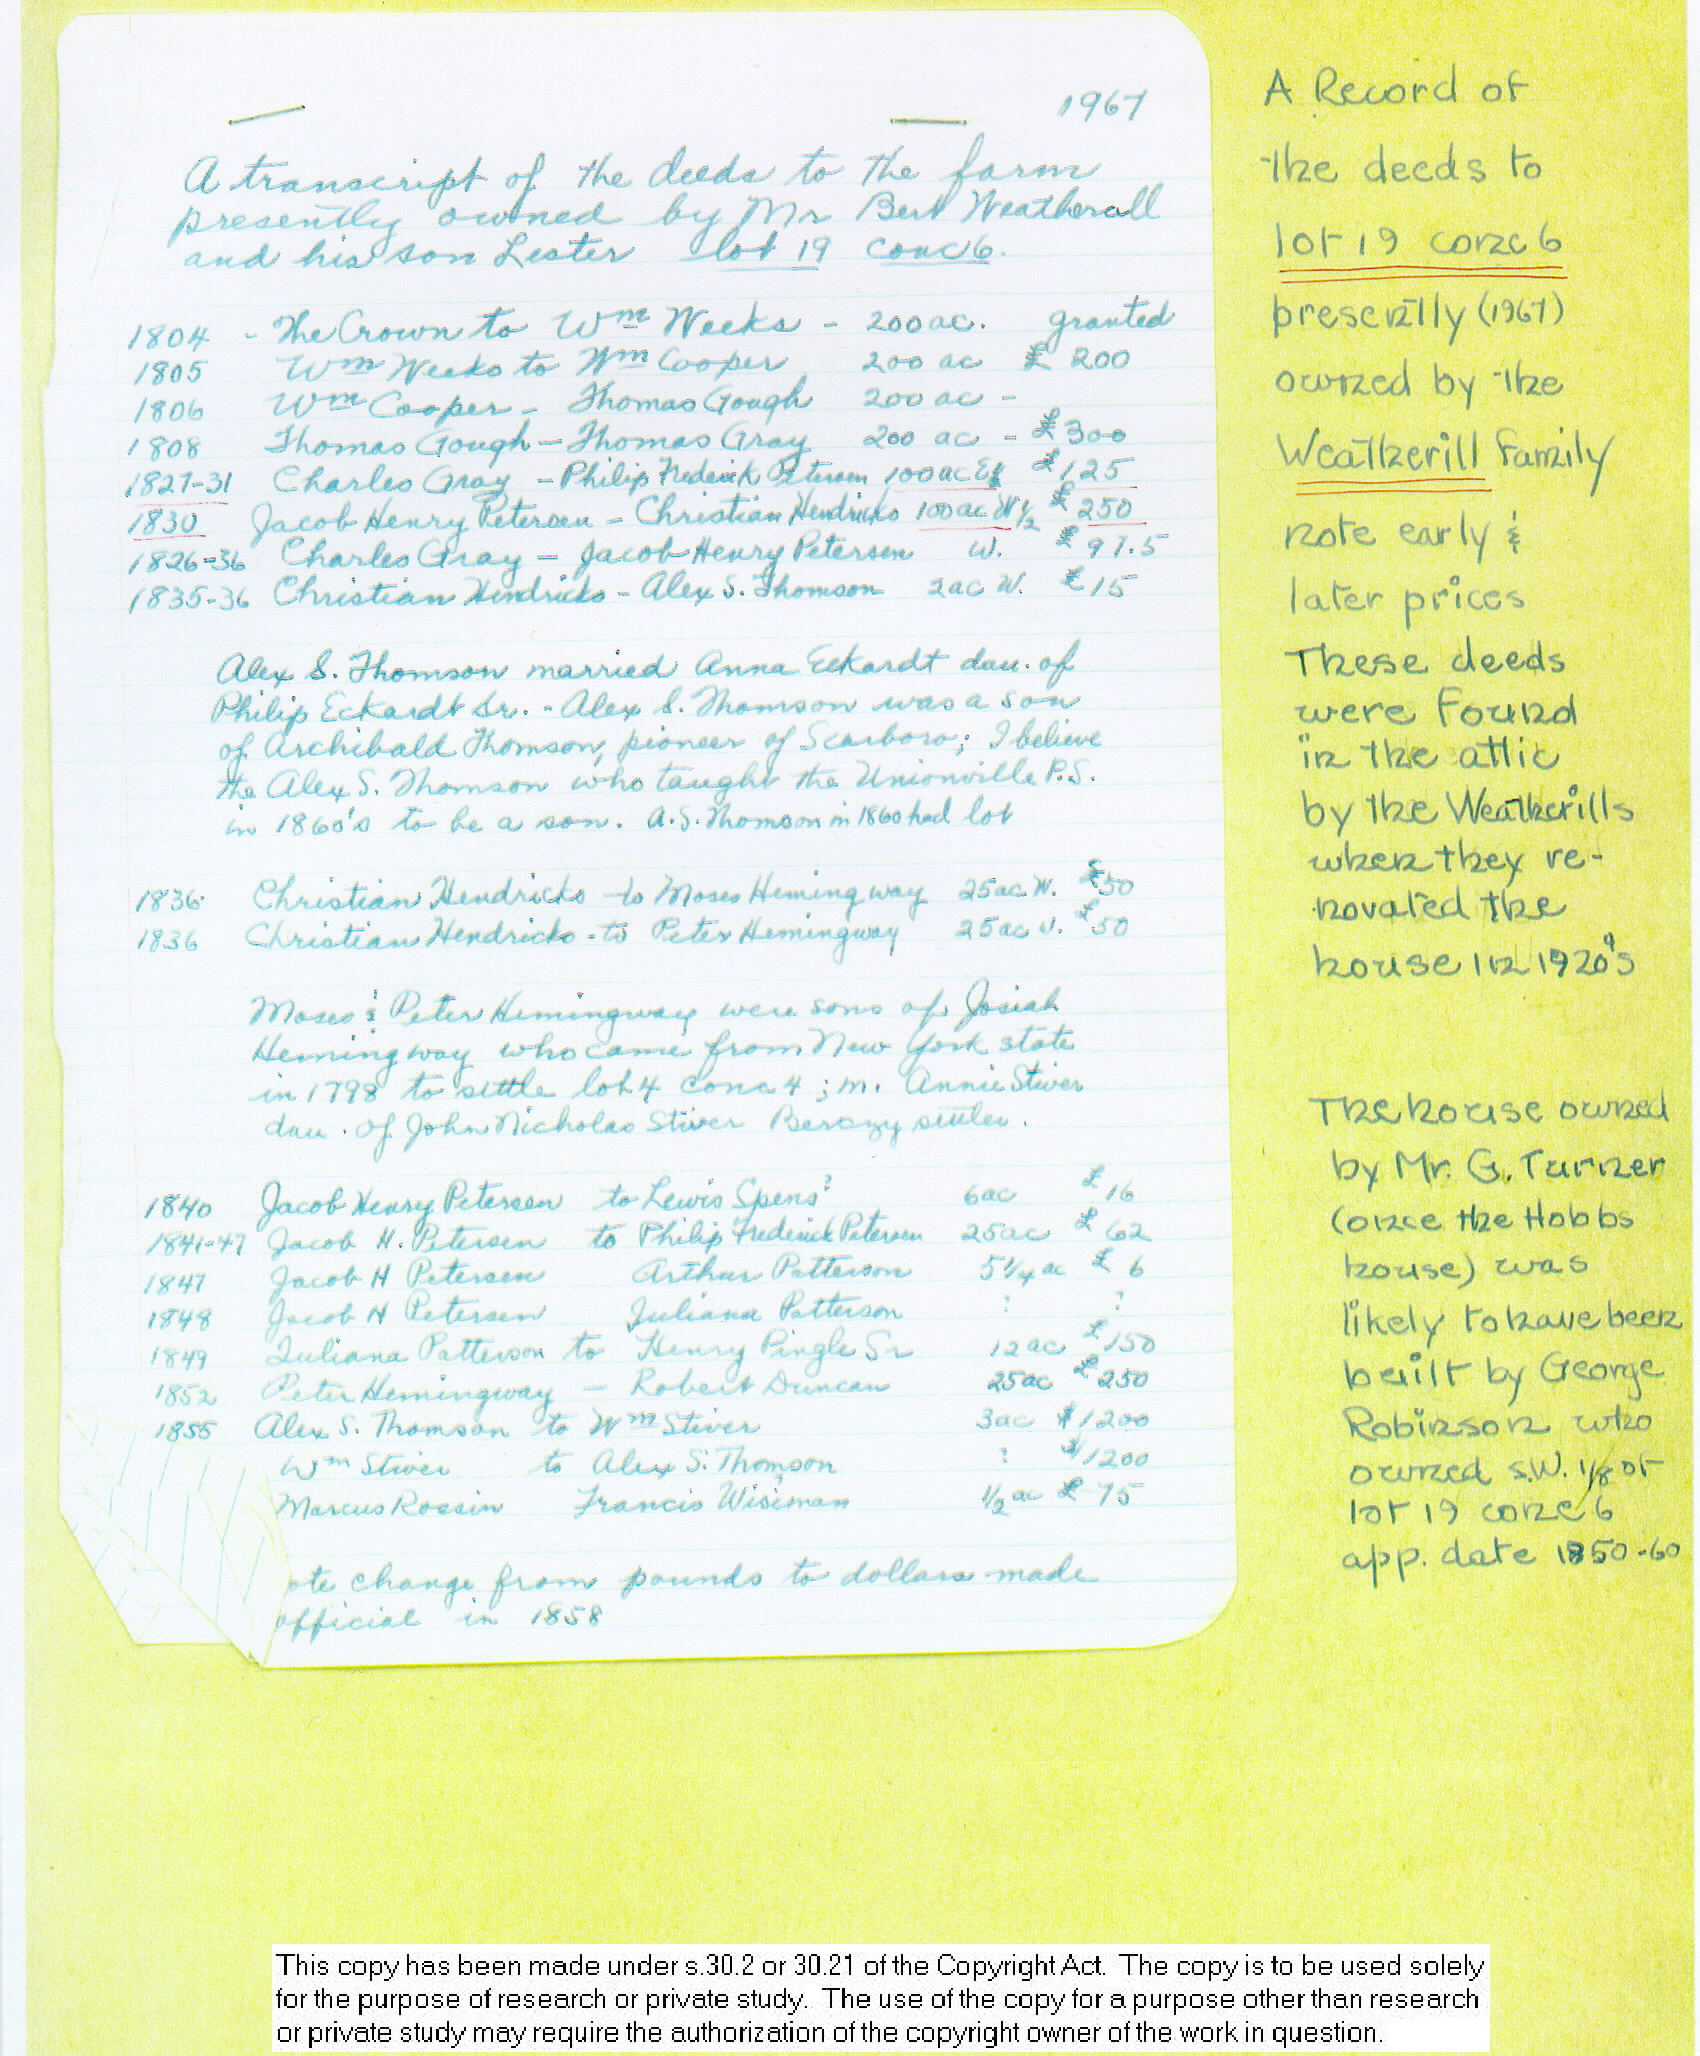 1967
A transcript of the deeds to the farm
presently owned by Mr Bert Weatherall
and his son Lester lot 19 conc 6.
1804 - The Crown to Wm Weeks - 200 ac. granted
1805 Wm Weeks to Wm Cooper 200 ac £ 200
1806 Wm Cooper - Thomas Gough 200 ac -
1808 Thomas Gough - Thomas Gray 200 ac - £300
1827-31 Charles Gray - Philip Frederick Petersen 100 ac E½ £125
1830 Jacob Henry Petersen - Christian Hendricks 100 ac W½ £ 250
1826-36 Charles Gray - Jacob Henry Petersen W. £ 97.5
1835-36 Christian Hendricks - Alex S. Thomson 2 ac W. £ 15
Alex S. Thomson married Anna Eckardt dau. of
Philip Eckardt Sr. - Alex S. Thomson was a son
of Archibald Thomson, pioneer of Scarboro; I believe
the Alex S. Thomson who taught the Unionville P.S.
in 1860's to be a son. A.S. Thomson in 1860 had lot
1836 Christian Hendricks to Moses Hemingway 25 ac W. £50
1836 Christian Hendricks - to Peter Hemingway 25 ac W. £50
Moses & Peter Hemingway were sons of Josiah
Hemingway who came from New York state
in 1798 to settle lot 4 conc 4 ; m. Annie Stiver
dau. of John Nicholas Stiver Berczy settler.
1840 Jacob Henry Petersen to Lewis Spens? 6 ac £ 16
1841-47 Jacob H. Petersen to Philip Frederick Petersen 25 ac £ 62
1847 Jacob H Petersen Arthur Patterson 5¼ ac £ 6
1848 Jacob H Petersen Juliana Patterson ? ?
1849 Juliana Patterson to Henry Pingle Sr 12 ac £150
1852 Peter Hemingway - Robert Duncan 25 ac £250
1855 Alex S. Thomson to Wm Stiver 3 ac $1200
Wm Stiver to Alex S. Thomson ? $1200
Marcus Rossin Francis Wiseman ½ ac £ 75
ote change from pounds to dollars made
official in 1858
A Record of
the deeds to
lot 19 conc 6
presently (1967)
owned by the
Weatherill Family
note early &
later prices
These deeds
were found
in the attic
by the Weatherills
when they re-
novated the
house in 1920's
The house owned
by Mr. G. Turner
(once the Hobbs
house) was
likely to have been
built by George
Robinson who
owned S.W. 1/8 of
lot 19 conc 6
app. date 1850-60
This copy has been made under s.30.2 or 30.21 of the Copyright Act. The copy is to be used solely
for the purpose of research or private study. The use of the copy for a purpose other than research
or private study may require the authorization of the copyright owner of the work in question.